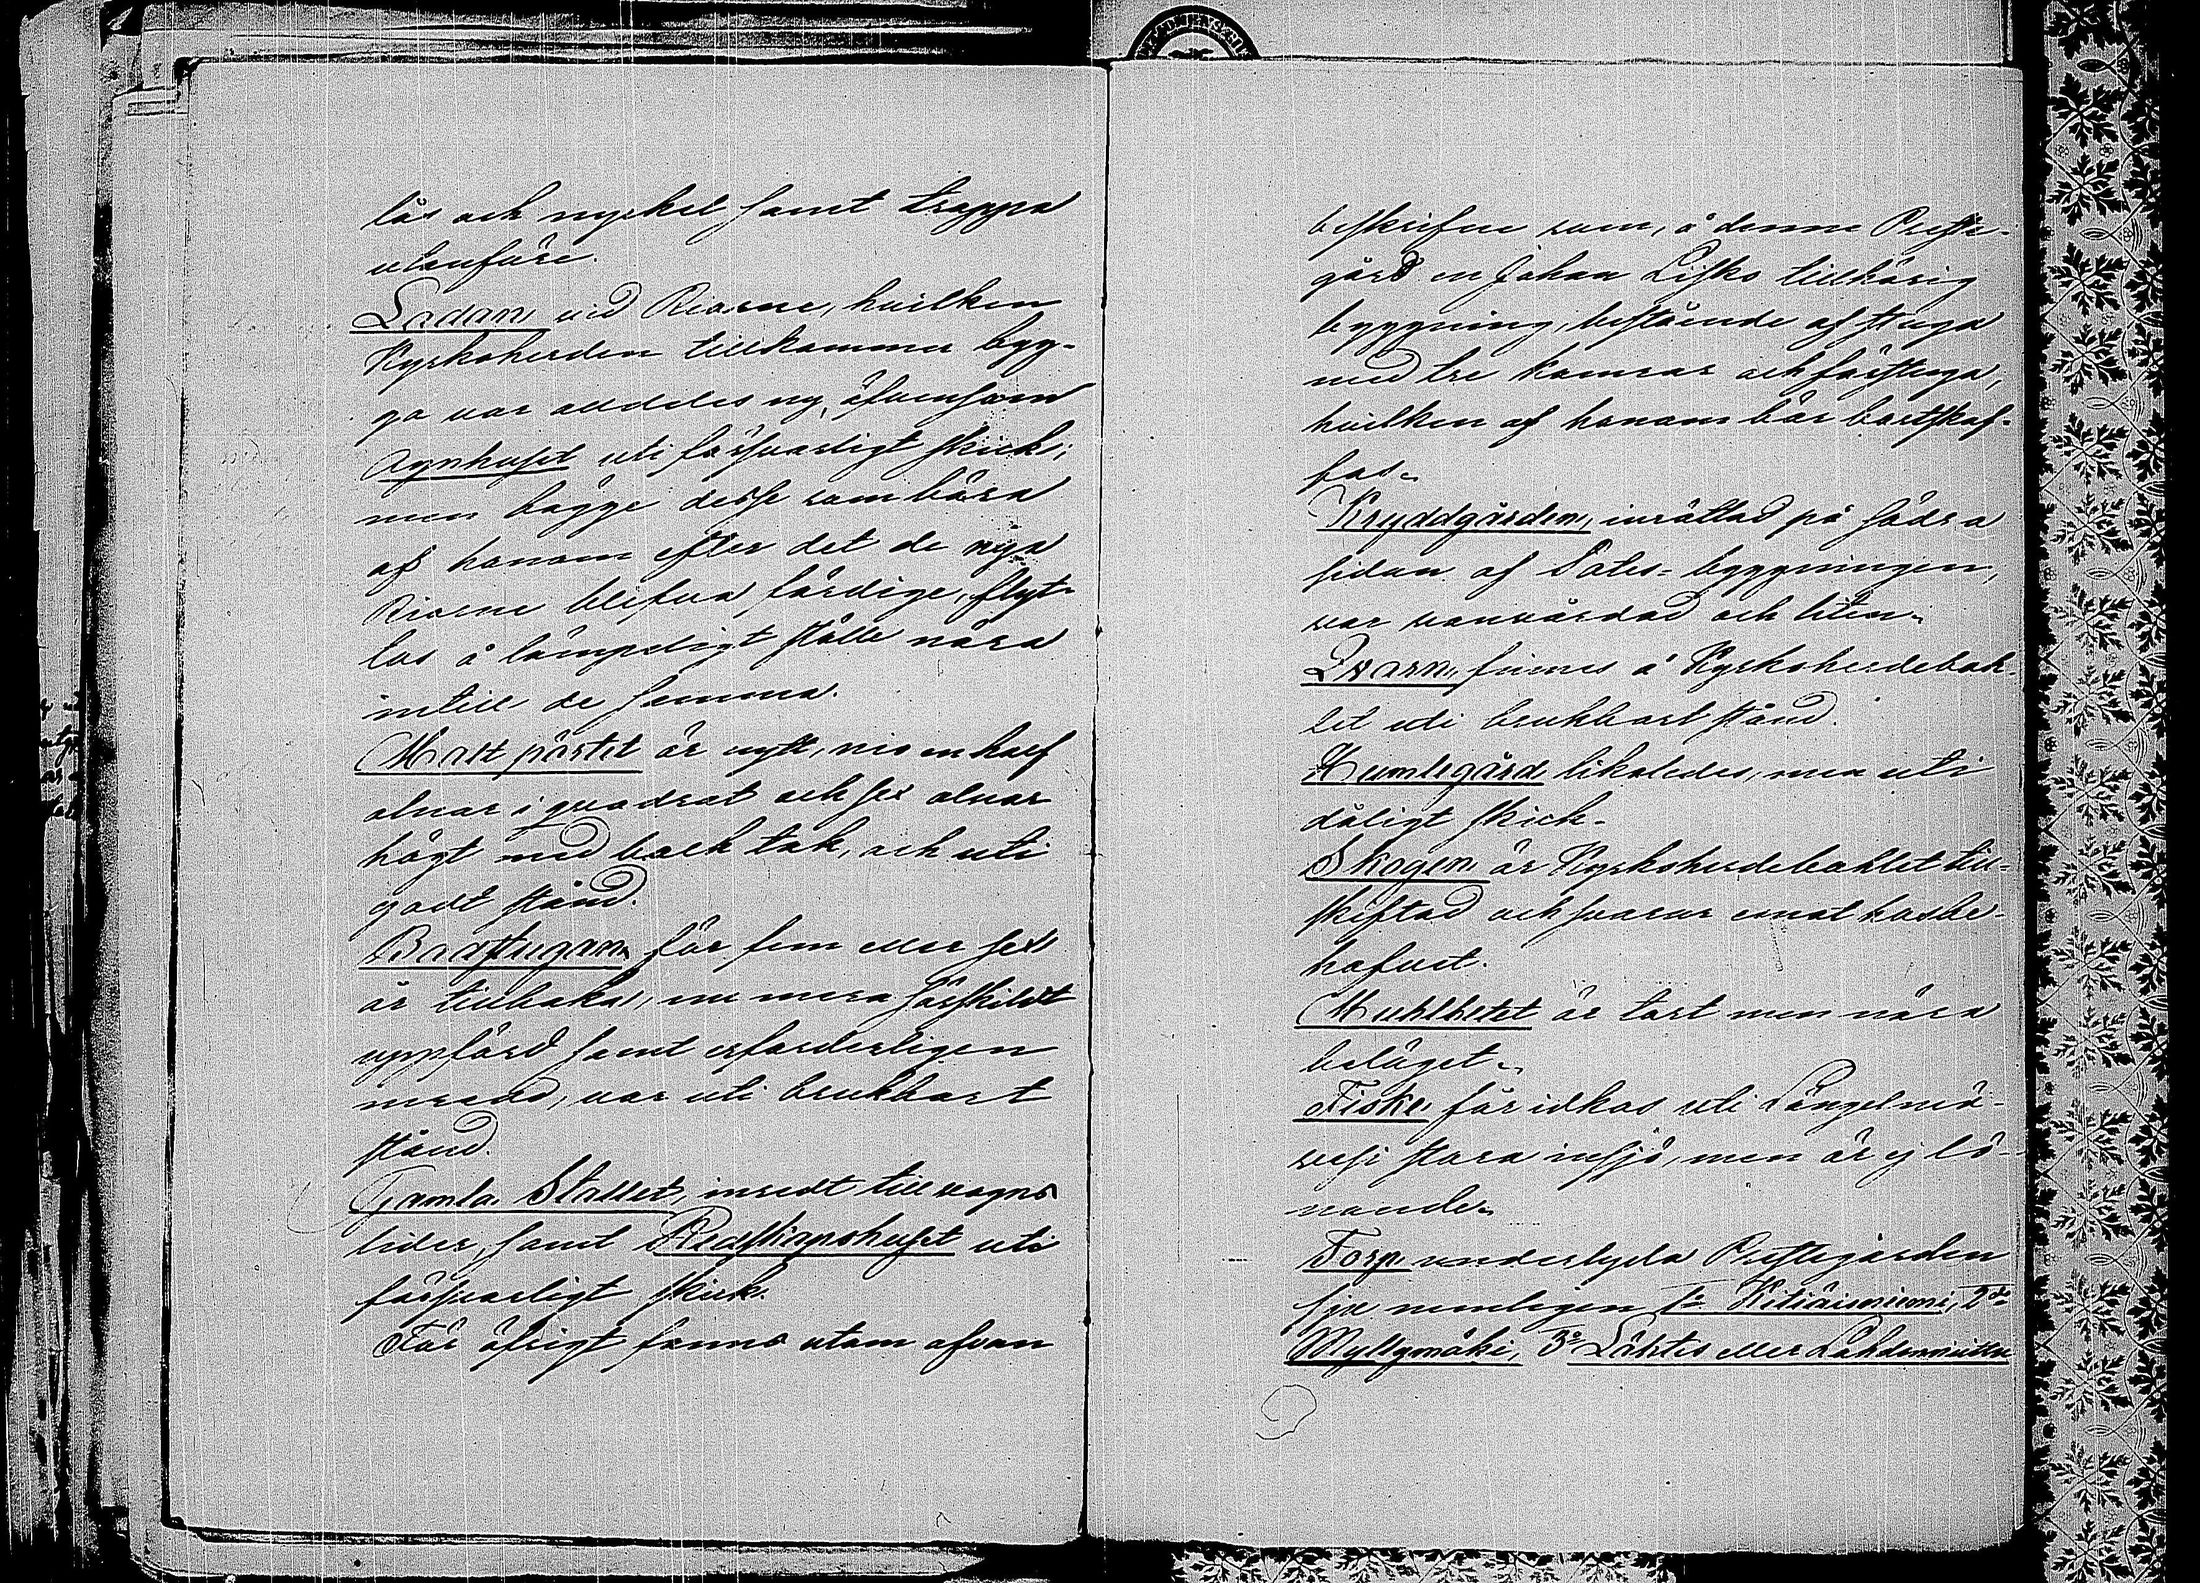 lås och nyckel samt trappa
utanföre.
Ladan, vid Riorne, hvilken
Kyrkoherden tillkommer byg-
ga var alldeles ny, äfvensom
Agnhuset uti försvarligt skick;
men bägge desse som böra
af honom efter det de nya
Riorne blifva färdige, flyt-
tas å lämpeligt ställe nära
intill de samma.
Malt pörtet är nytt, nio en half
alnar i quadrat och sex alnar
högt med back tak, och uti
godt stånd.
Badstugan, för fem eller sex
år tillbaka, nu mera särskildt
uppförd samt erforderligen
inredd, var uti brukbart
stånd.
Gamla Stallet, inredt till vagns
lider, samt Redskapshuset uti
försvarligt skick.
För öfrigt fanns utom ofvan
beskrifne rum, å denne Preste-
gård en Johan Lifko tillhörig
byggning, bestående af stuga
med tre kamrar och förstuga,
hvilken af honom bör bortskaf-
fas.
Kryddgården, inrättad på södra
sidan af Sates-byggningen,
var vanvårdad och liten.
Qvarn, finnes å Kyrkoherdebohl-
let uti brukbart stånd.
Humlegård likaledes, men uti
dåligt skick.
Skogen är Kyrkoherdebohlet till-
skiftad och svarar emot husbe-
hofvet.
Muhlbetet är tort men nära
beläget.
Fiske, får idkas uti Längelmä-
vesi stora insjö, men är ej lö-
nande.
Torp underlyda Prestegården
sju nemligen 1:o Kitiäisniemi, 2:do
Myllymäki, 3:o Lähtis eller Lahdenniittu